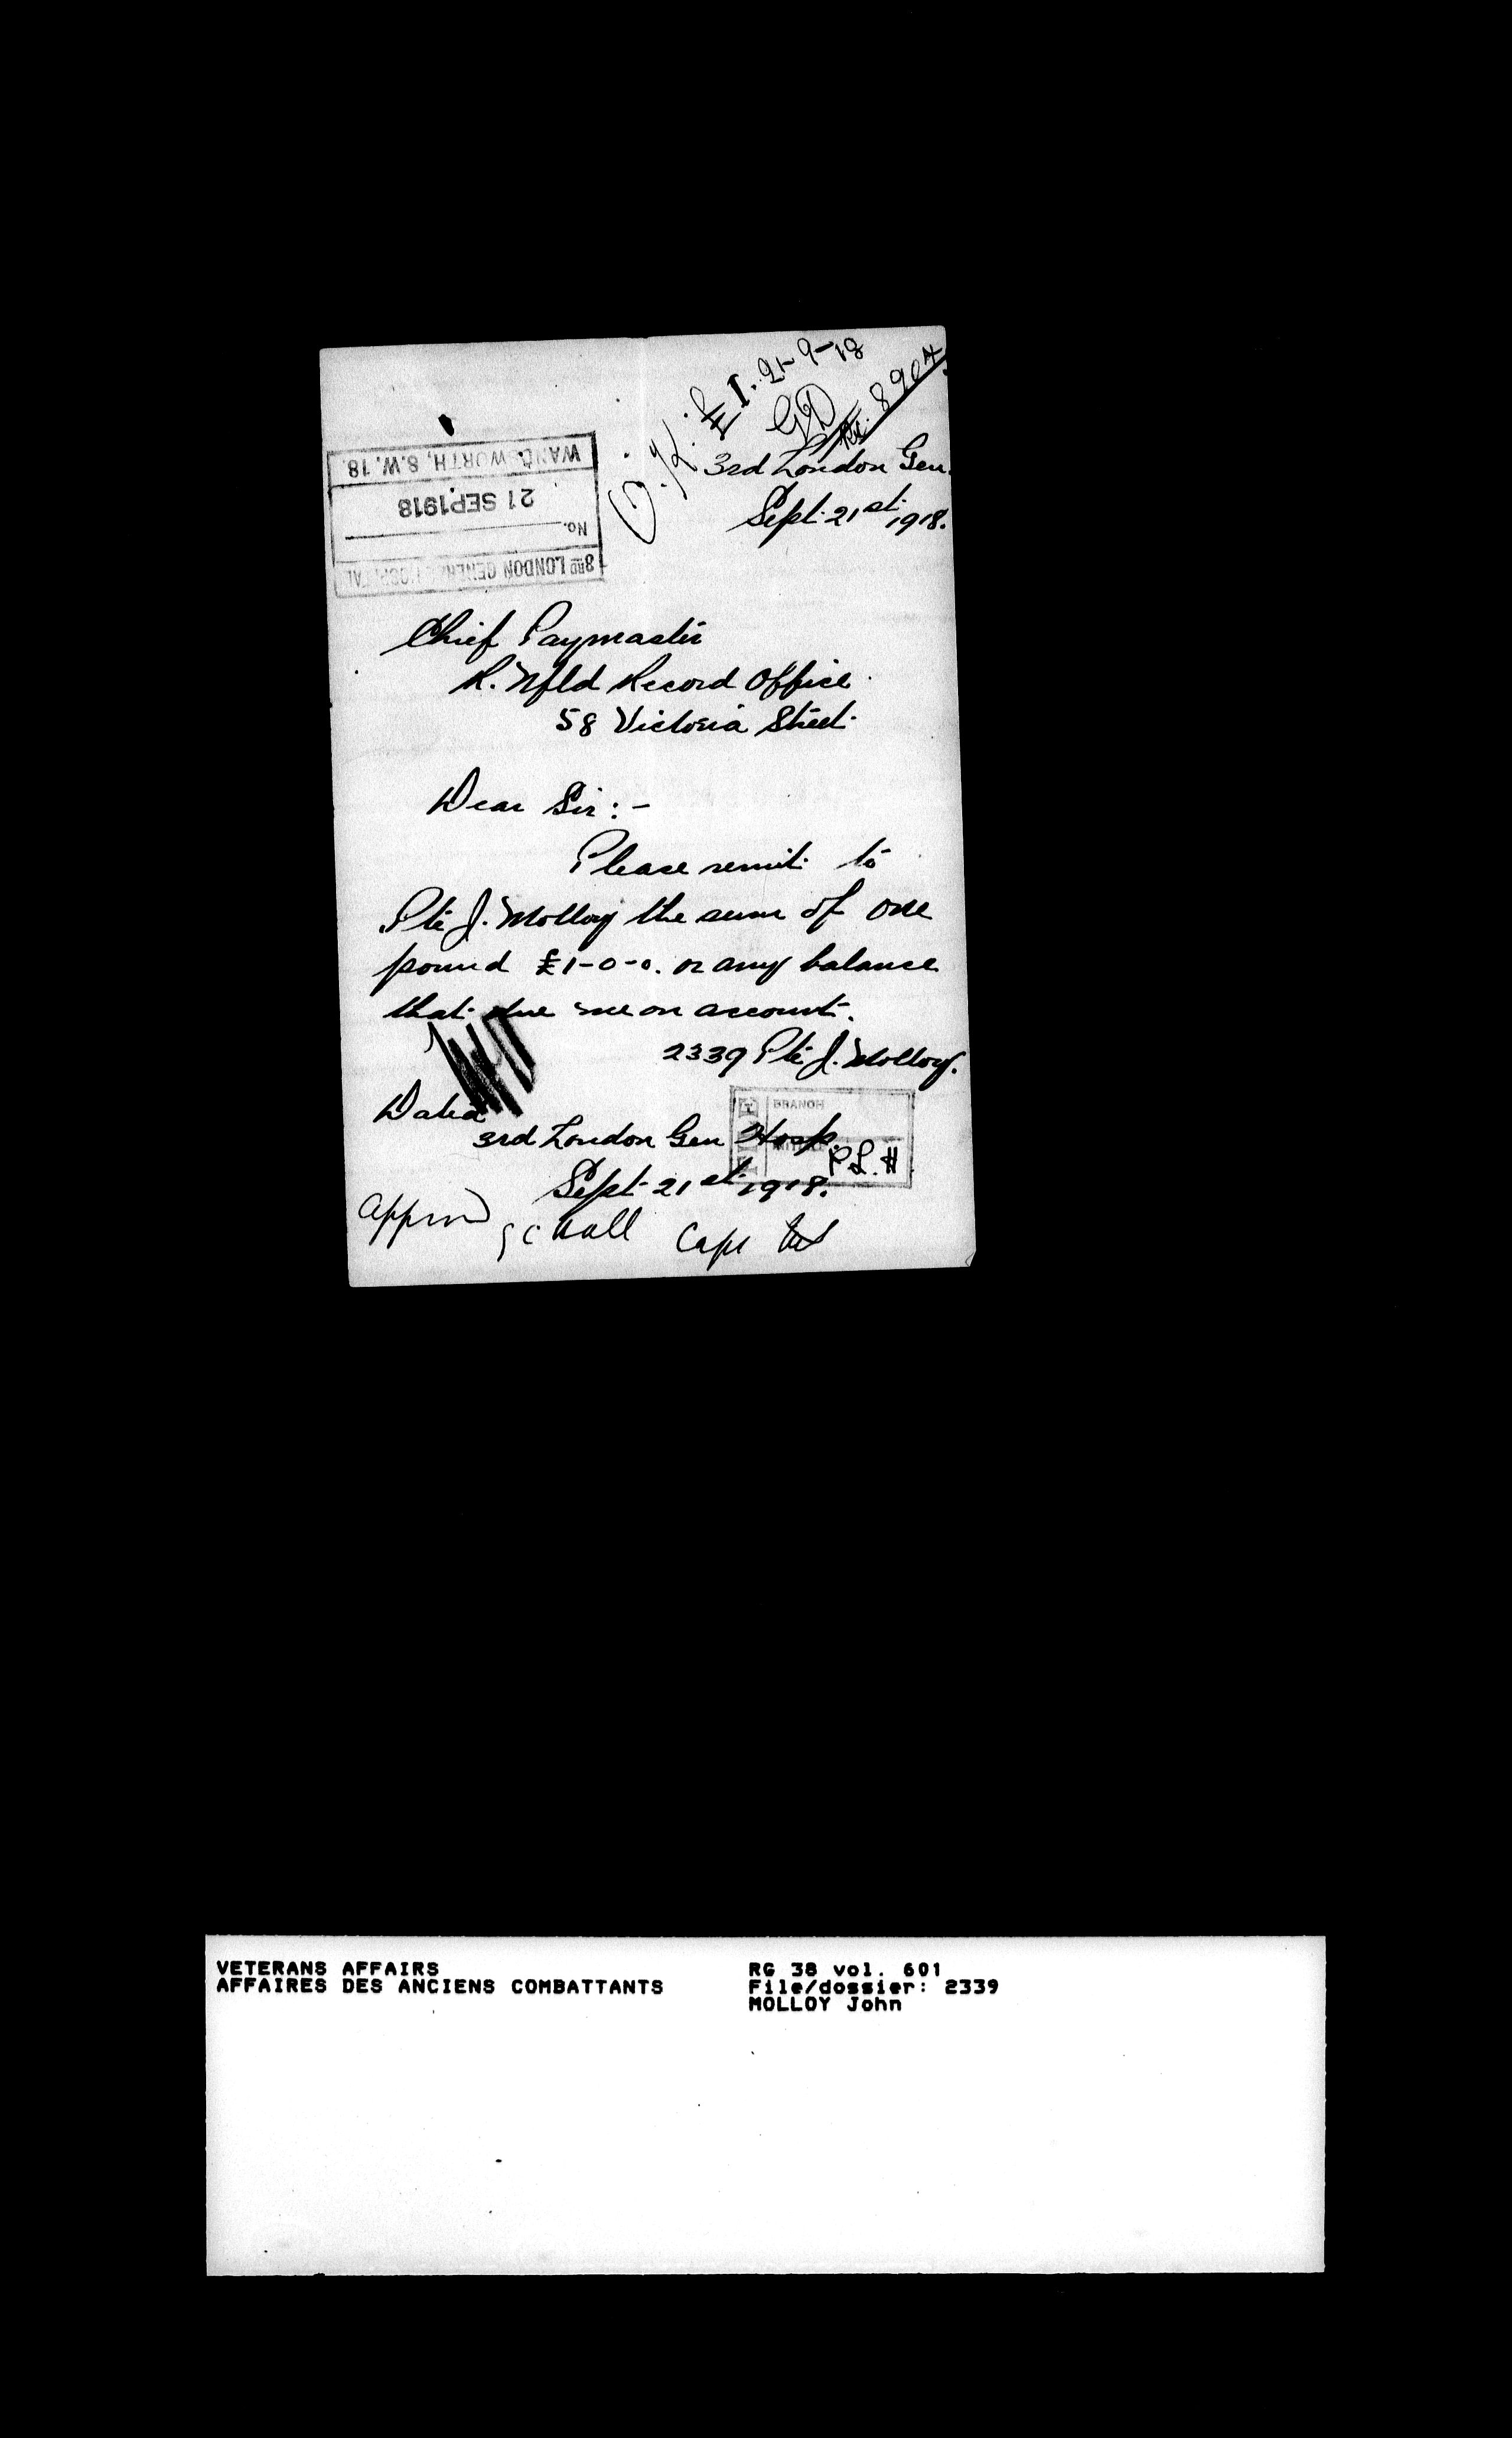 O.K. £1. 21-9-18
GD
8904
3RD LONDON GENERAL HOSPITAL
No.
21 SEP 1918
WANDSWORTH, S.W. 18.
3rd London Gen.
Sept. 21st. 1918.
Chief Paymaster
R. Nfld Record Office
58 Victoria Street.
Dear Sir:-
Please remit to
Pte J. Molloy the sum of one
pound £1-0-0. or any balance
that due me on account.
2339 Pte J. Molloy.
Dated
3rd London Gen Hosp.
Sept. 21st. 1918.
BRANCH
P.L.H.
Approved
Hall Capt
VETERANS AFFAIRS
AFFAIRES DES ANCIENS COMBATTANTS
RG 38 vol. 601
File/dossier: 2339
MOLLOY John